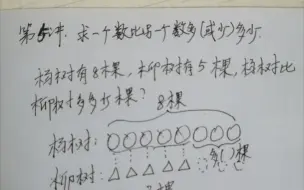 第5讲. 求一个数比另一个数多(或少)多少.
杨树有8棵, 柳树有5棵, 杨树比
柳树多多少棵?
8棵
杨树:
多( )棵
柳树:
棵